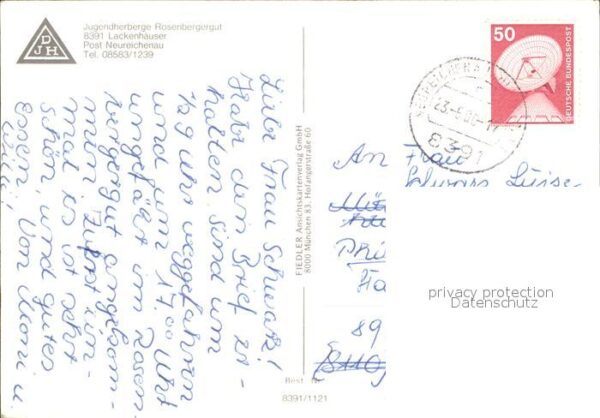 DJH
Jugendherberge Rosenbergergut
8391 Lackenhäuser
Post Neureichenau
Tel. 08583/1239
Liebe Frau Schwarz!
Habe den Brief er-
halten. Sind um
Uhr weggefahren
und um 17.00 Uhr
ungefähr im Rosen-
bergergut angekom-
men. Zuerst ein-
mal es ist sehr
schön und gutes
Essen!
Von Moni u.
FIEDLER Ansichtskartenverlag GmbH
8000 München 83, Hofangerstraße 60
Best. Nr.
8391/1121
50
DEUTSCHE BUNDESPOST
8391
An Frau
Schwarz Luise
89
privacy protection
Datenschutz